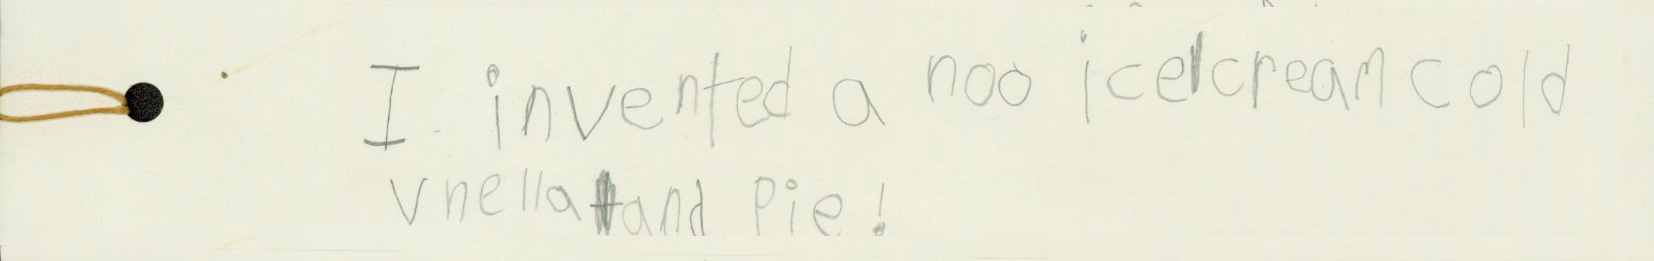 I invented a noo icecream cold
vnella and Pie!